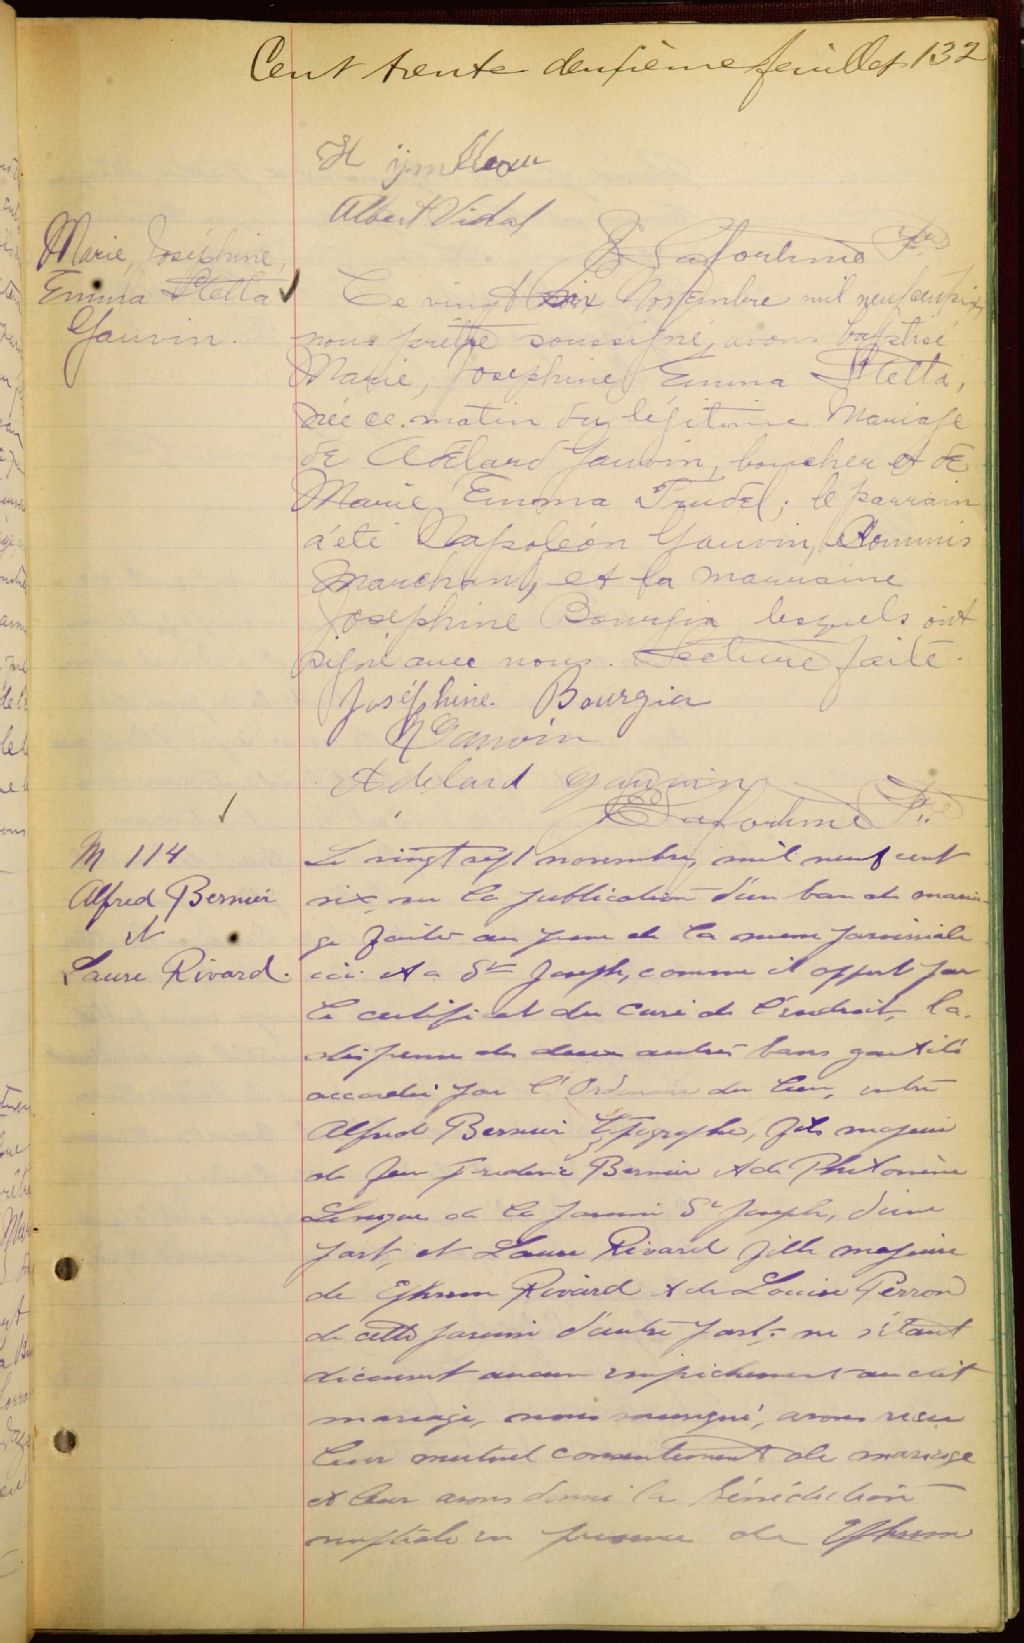 Cent trente deuxième feuillet 132
Albert Vidal
E Laforhme Ptr
Marie, Joséphine,
Emma Stella
Gauvin.
Ce vingt six Novembre mil neuf cent six
nous prêtre soussigné, avons baptisé
Marie, Joséphine Emma Stella,
née ce matin du légitime Mariage
de Adélard Gauvin, boucher et de
Marie Emma Trudel; le parrain
a été Napoléon Gauvin, Commis
Marchand, et la marraine
Joséphine Bourgia lesquels ont
signé avec nous. Lecture faite.
Joséphine. Bourgia
N Gauvin
Adelard Gauvin
E Laforhme Ptr
M 114
Alfred Bernier
et
Laure Rivard.
Le vingt sept novembre, mil neuf cent
six, vu la publication d'un ban de maria-
ge faite au prone de la messe paroissiale
ici et a St Joseph, comme il appert par
le certificat du curé de l'endroit, la
dispense des deux autres bans ayant été
accordée par l'Ordinaire du lieu, entre
Alfred Bernier typographe, fils majeur
de feu Frederic Bernier et de Philomène
de la paroisse St Joseph, d'une
part, et Laure Rivard fille majeure
de Ephrem Rivard et de Louise Perron
de cette paroisse d'autre part; ne s'étant
découvert aucun empêchement au dit
mariage, nous soussigné, avons reçu
leur mutuel consentement de mariage
et leur avons donné la bénédiction
nuptiale en présence de Ephrem